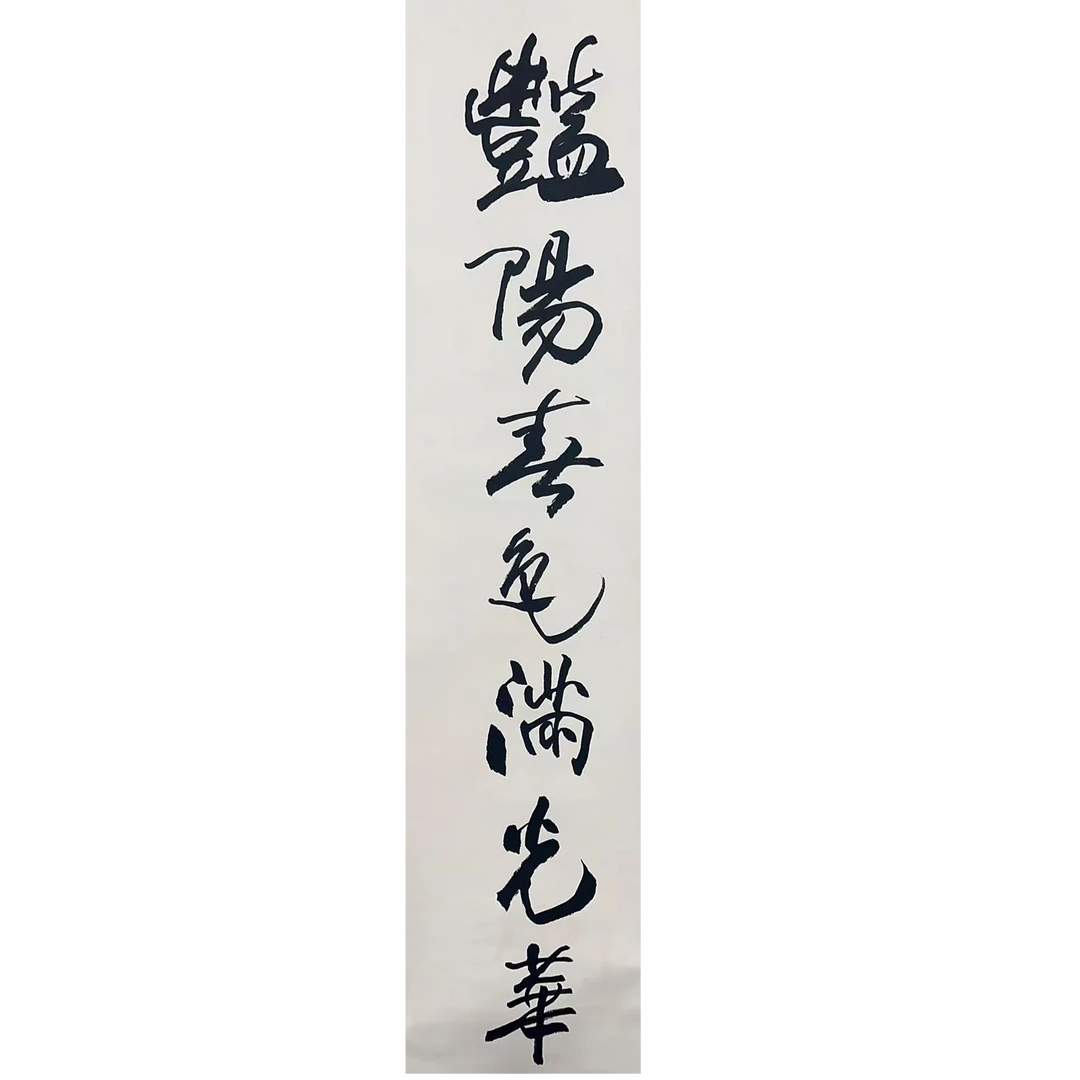 豔陽春色滿光華